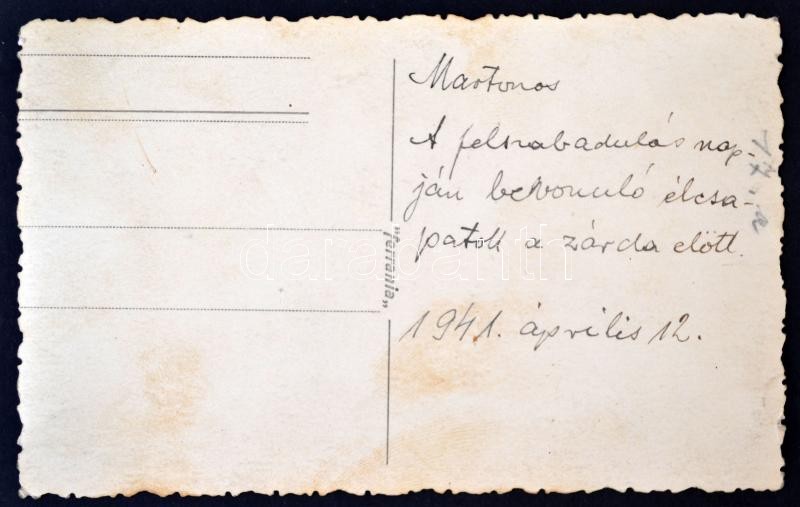 Martonos
A felszabadulás nap-
ján bevonuló élcsa-
patok a zárda előtt.
1941. április 12.
"ferrania"
darabanth